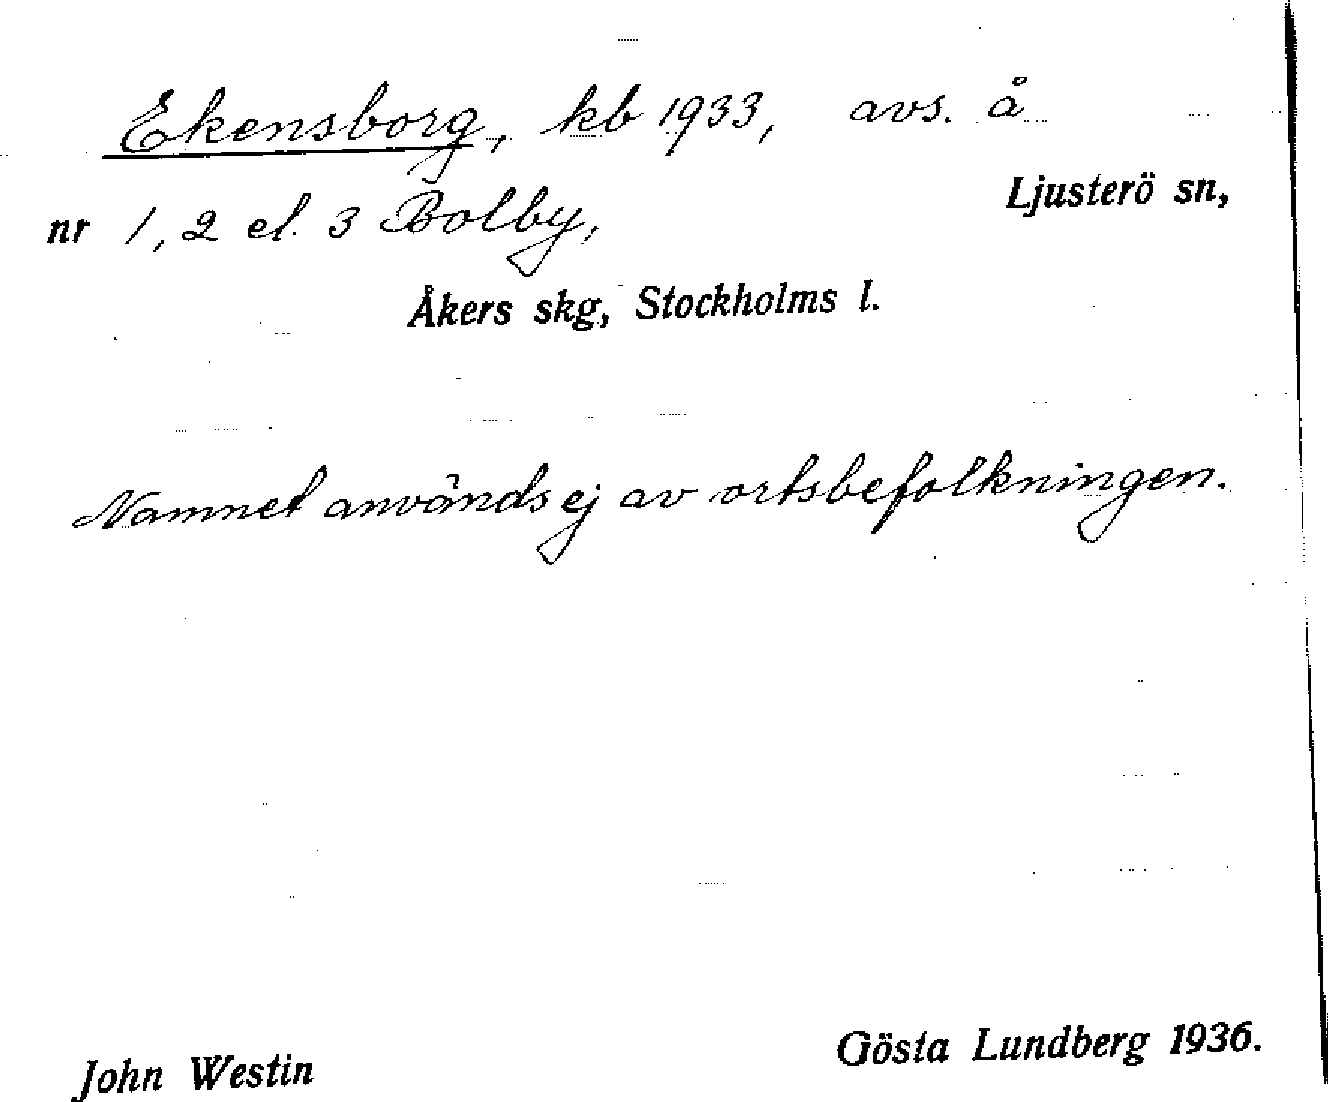 Ekensborg, kb 1933, avs. å
Ljusterö sn,
nr 1, 2 el. 3 Bolby,
Åkers skg, Stockholms l.
Namnet användes ej av ortsbefolkningen.
John Westin
Gösta Lundberg 1936.